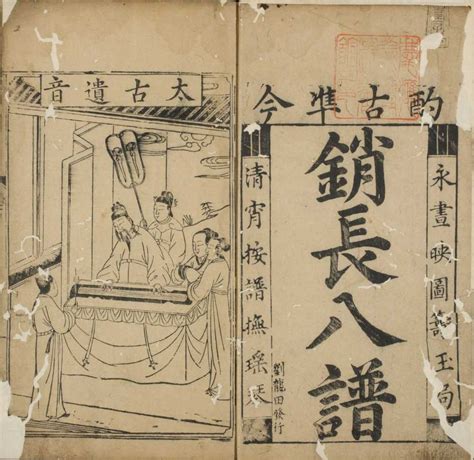 酌古準今
永晝映圖玉局
銷長八譜
清宵按譜撫瑤琴
劉龍田發行
太古遺音